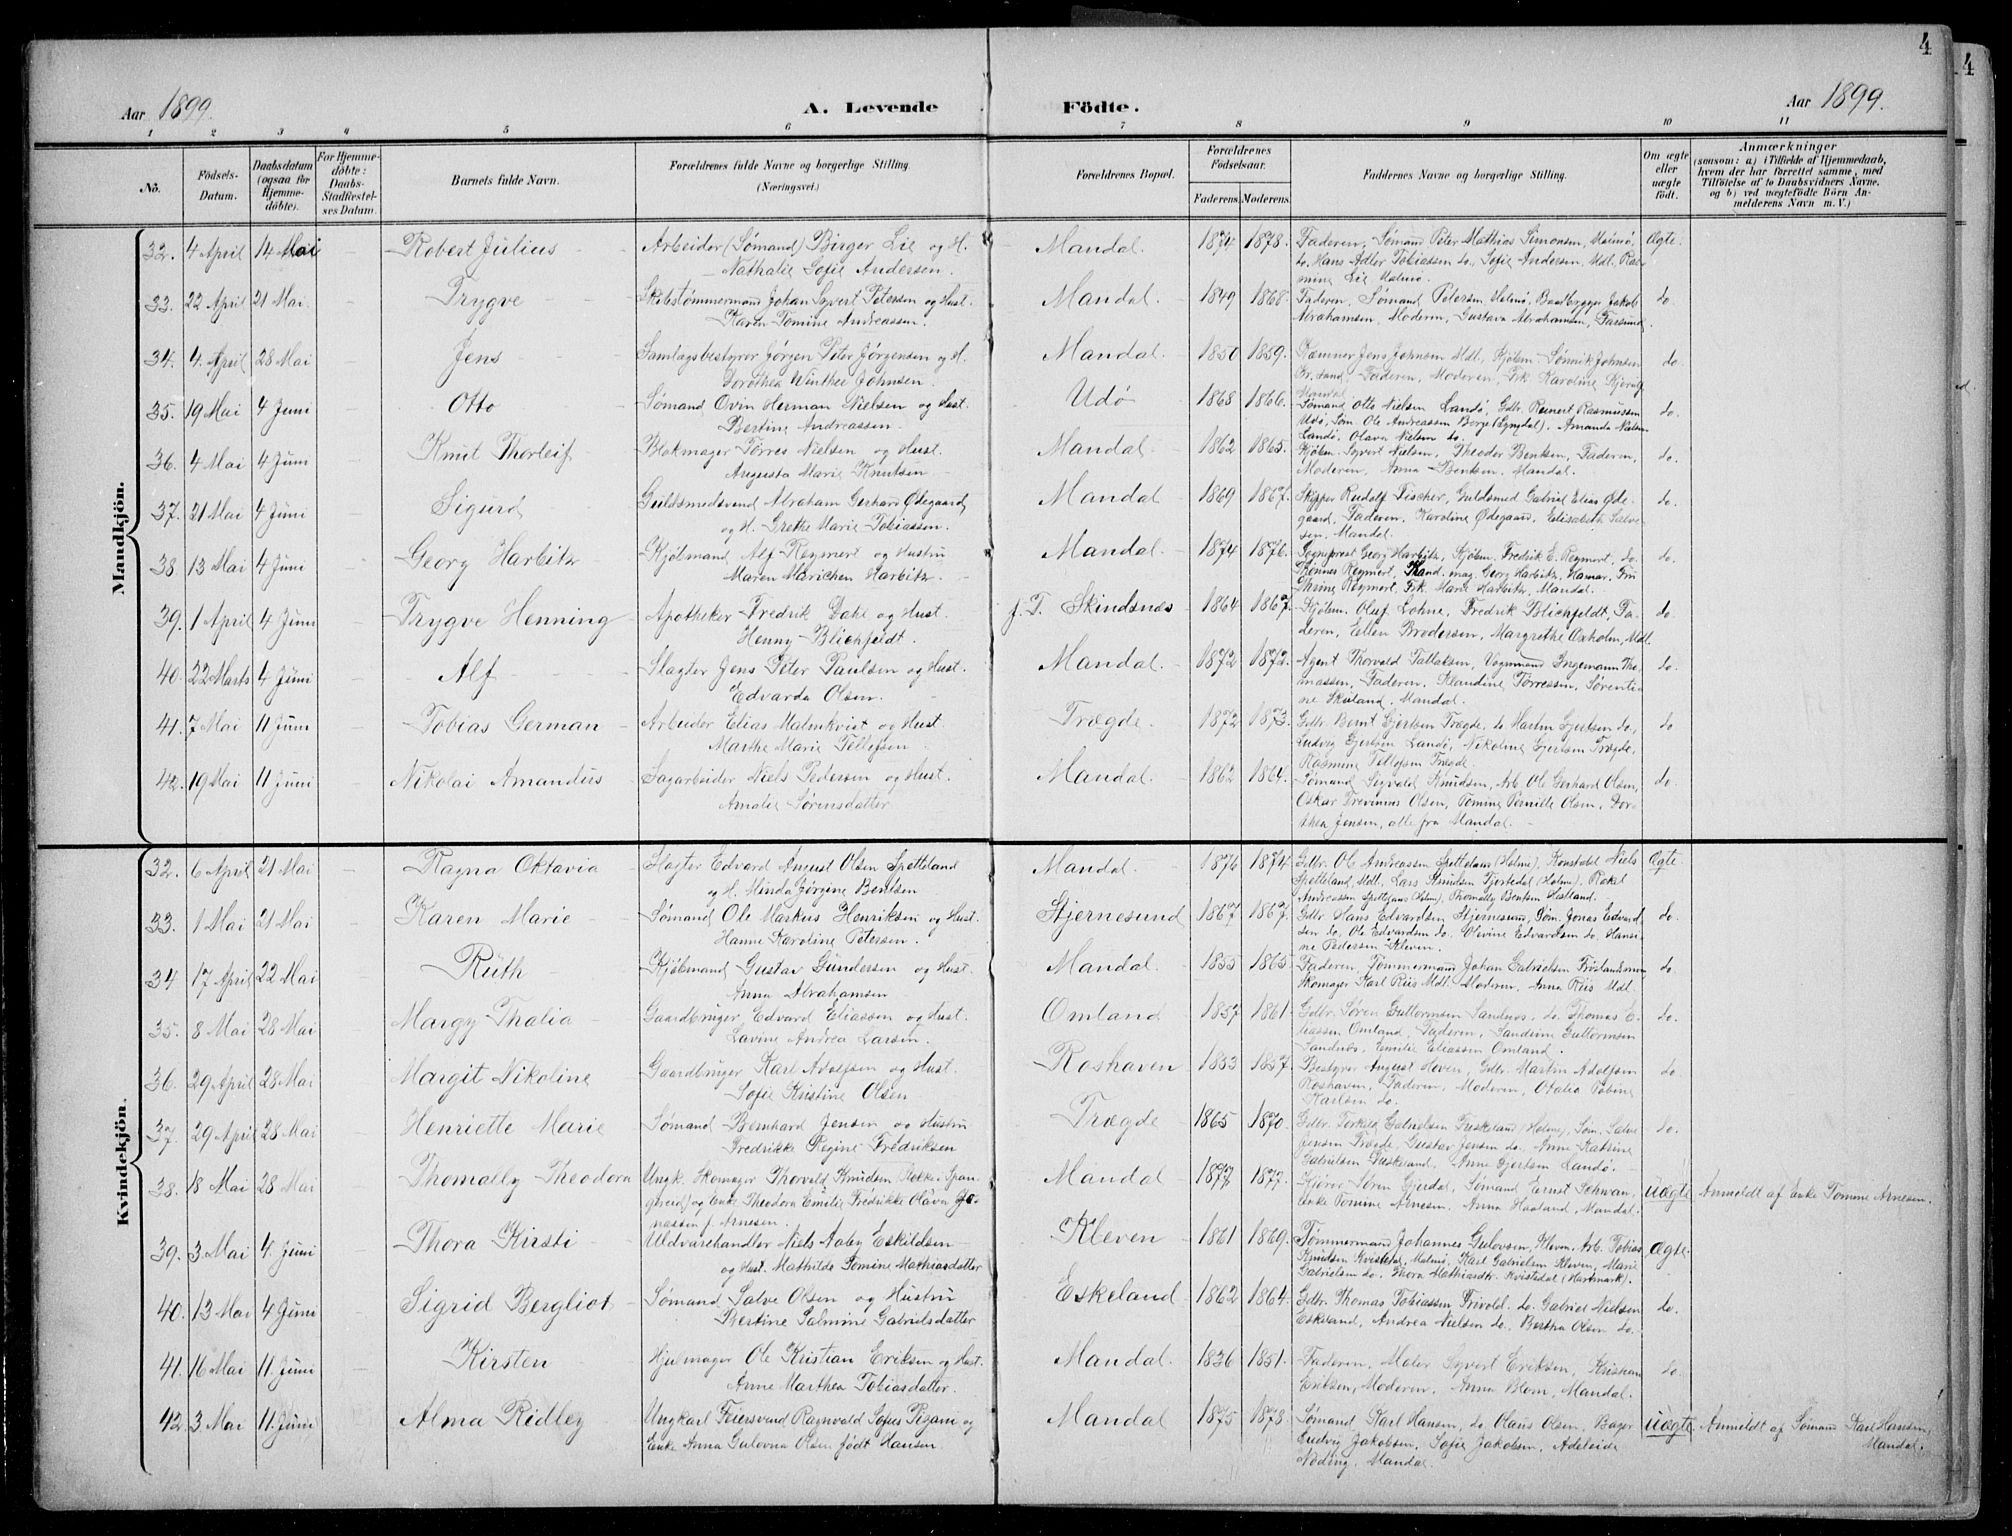 4
4
Aar 1899. A. Levende Födte. Aar 1899.
1 2 3 4 5 6 7 8 9 10 11
No. Födsels-Datum. Daabsdatum (ogsaa for Hjemme-döbte). For Hjemme-döbte: Daabs-Stadfæstel-ses Datum. Barnets fulde Navn. Forældrenes fulde Navne og borgerlige Stilling (Næringsvei.) Forældrenes Bopæl. Forældrenes Födselsaar. Faderens Moderens Faddernes Navne og borgerlige Stilling. Om ægte eller uægte födt. Anmærkninger
(saasom: a) i Tilfælde af Hjemmedaab, hvem der har forrettet samme, med Tilföielse af to Daabsvidners Navne, og b) ved uægtefödte Börn An-melderens Navn m. V.)
Mandkjön.
32. 4 April 14 Mai Robert Julius Arbeider (Sømand) Birger Lie og H. Mandal. 1874 1878. Faderen, Sømand Peter Mathias Simonsen, Malmö, Ægte.
Nathalie Sofie Andersen. do. Hans Adler Tobiassen do., Sofie Andersen, Mdl. Ras-
mine Lie Malmö.
33. 22 April 21 Mai. Trygve Skibstømmermand Johan Syvert Petersen og Hust. Mandal. 1849 1868. Faderen, Sømand Petersen, Malmö, Baadbygger Jakob do.
Karen Tomine Andreassen. Abrahamsen, Moderen, Gustava Abrahamsen, Farsund.
34. 4. April 28 Mai Jens Samlagsbestyrer Jørgen Peter Jørgensen og H. Mandal. 1850 1859. Kæmner Jens Johnsen Mdl., Kjøbm. Sønnik Johnsen do.
Dorothea Winther Johnsen. Kr. sand, Faderen, Moderen, Frk. Karoline
Mandal
35. 19 Mai 4 Juni Otto Sømand Ovin Herman Nielsen og Hust. Udö 1868 1866. Sømand Otto Nielsen Landö, Gdbr. Reinert Rasmussen do.
Bertine Andreassen. Udö, Søm. Ole Andreassen Borge (Lyngdal). Amanda Nielsen
Landö, Olava Nielsen do.
36. 4 Mai 4 Juni Knut Thorleif Blokmager Tørres Nielsen og Hust. Mandal 1862 1865. Kjøbm. Syvert Nielsen, Theodor Bentsen, Faderen, do.
Augusta Marie Knutsen Moderen, Anna Bentsen, Mandal.
37. 21 Mai 4 Juni Sigurd Guldsmedsvend Abraham Gerhard Ødegaard Mandal 1869 1867. Skipper Rudolf Fischer, Guldsmed Gabriel Elias Øde- do.
og H. Grethe Marie Tobiassen. gaard, Faderen, Karoline Ødegaard, Elisabeth Salve-
sen, Mandal.
38. 13 Mai 4 Juni Georg Harbitz Kjøbmand Alf Reymert og Hustru Mandal 1874 1876. Sogneprest Georg Harbitz, Kjøbm. Fredrik E. Reymert, do. do.
Maren Marichen Harbitz. Reymert, Kand. mag. Georg Harbitz, Hamar, Fru
Thrine Reymert, Frk. Marie Harbitz, Mandal.
39. 1 April 4 Juni Trygve Henning Apotheker Fredrik Dahl og Hust. f. T. Skindsnæs 1864 1867. Kjøbm. Oluf Lohne, Fredrik Blichfeldt, Fa- do.
Henny Blichfeldt. deren, Ellen Brodersen, Margrethe Oxholm, Mdl.
40. 22 Marts 4 Juni Alf Slagter Jens Peter Paulsen og Hust. Mandal. 1872 1872. Agent Thorvald Tallaksen, Vognmand Ingemann Tho- do.
Edvarda Olsen. massen, Faderen, Klandine Tørressen, Sørenti-
ne Skoland, Mandal.
41. 7 Mai 11 Juni Tobias German Arbeider Elias Malmkvist og Hust. Trægde. 1872 1873. Gdbr. Bernt Gjertsen Trægde, do Martin Gjertsen do., do
Marthe Marie Tellefsen Ludvig Gjertsen Landö, Nikoline Gjertsen Trægde,
Rasmine Tellefsen Trægde.
42. 19 Mai 11 Juni Nikolai Amandus Sagarbeider Niels Pedersen og Hust. Mandal 1862 1864. Sømand Sigvald Knudsen, Arb. Ole Gerhard Olsen, do.
Amalie Sørensdatter Oskar Olsen, Tomine Pernille Olsen, Dor-
thea Jensen, alle fra Mandal.
Kvindekjön.
32. 6 April 21 Mai Ragna Oktavia Slagter Edvard August Olsen Spetteland Mandal. 1876 1874. Gdbr. Ole Andreassen Spetteland (Holme), Konstabel Niels Ægte
og H. Minda Jørgine Bentsen Spetteland, Mdl., Lars Knudsen (Holme). Rakel
Andreassen Spetteland (Holme), Thomally Bentsen
33. 1 Mai 21 Mai Karen Marie Sømand Ole Markus Henriksen og Hust. Stjernesund 1867 1867. Gdbr. Hans Edvardsen Stjernesund, Søm. Jonas Edvard- do.
Hanne Karoline Petersen. sen do., Ole Edvardsen do. Olevine Edvardsen do. Hansi-
ne Pedersen Kleven.
34 17 April 22 Mai Ruth Kjøbmand Gustav Gundersen og Hust. Mandal. 1855 1865. Faderen, Tømmermand Johan Gabrielsen do.
Anna Abrahamsen Skomager Karl Riis Mdl. Moderen, Anna Riis Mdl.
35. 8 Mai 28 Mai Margy Thalia Gaardbruger Edvard Eliassen og Hust. Omland 1857 1861. Gdbr. Søren Guttormsen Sandnes, do. Thomas E- do.
Lavine Andrea Larsen. liassen Omland, Faderen, Guttormsen
Sandnes, Emilie Eliassen Omland.
36. 29 April 28 Mai Margit Nikoline Gaardbruger Karl Adolfsen og Hust. Roshaven 1853 1857. Bestyrer August Hoven, Gdbr. Martin Adolfsen do.
Sofie Kristine Olsen Roshaven, Faderen, Moderen, Otalia Tobine
Karlsen do.
37. 29 April 28 Mai Henriette Marie Sømand Bernhard Jensen og Hustru Trægde 1865 1870. Gdbr. Torkild Gabrielsen (Holme), Søm. Salve do.
Fredrikke Regine Fredriksen Jensen Trægde, Gustav Jensen do., Anne Katrine
Gabrielsen, Anne Gjertsen Landö.
38. 18 Mai 28 Mai Thomally Theodora Ungk. Skomager Thorvald Knudsen Stokke (Span- Mandal 1877 1877. Søren Gjerdal, Sømand Ernst Schwan, Uægte Anmeldt af Enke Tomine Arnesen.
gereid) og Enke Theodora Emilie Fredrikke Olava Jo- Enke Tomine Arnesen, Anna Haaland, Mandal.
nassen f. Arnesen.
39. 3 Mai 4. Juni Thora Kirsti Uldvarehandler Niels Aaby Eskildsen Kleven 1861 1869. Tømmermand Johannes Gulovsen, Kleven, Arb. Tobias Ægte.
og Hust. Mathilde Tomine Mathiasdatter Knudsen Kvisedal, Malmö, Karl Gabrielsen Kleven, Marie
Gabrielsen do. Thora Mathiasdtr. Kvisedal (Hartmark).
40. 13 Mai 4 Juni Sigrid Bergliot Sømand Salve Olsen og Hustru Eskeland 1862 1864. Gdbr. Thomas Tobiassen, Frivold, do. Gabriel Nielsen do.
Bertine Salmine Gabrielsdatter Eskeland, Andrea Nielsen do. Bertha Olsen do.
41. 16 Mai 11. Juni Kirsten Hjulmager Ole Kristian Eriksen og Hust. Mandal. 1836 1851. Faderen, Maler Syvert Eriksen, Kristian do.
Anne Marthea Tobiasdatter. Eriksen, Moderen, Anna Blom, Mandal.
42. 3 Mai 11. Juni Alma Ridley Ungkarl Feiersvend Ragnvald Sofus Pizani og Mandal 1875 1878. Sømand Karl Hansen, do. Olaus Olsen, Bager Uægte Anmeldt af Sømand Karl Hansen,
Enke Anna Gulovna Olsen født Hansen. Ludvig Jakobsen, Sofie Jakobsen, Adelaide Mandal.
Nöding, Mandal.